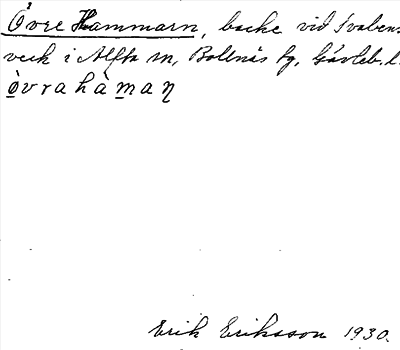 Övre Hammarn, backe vid Svaben-
verk i Alfta sn, Bollnäs fg, Gävleb. l.
òvrahàmaŋ
Erik Eriksson 1930.